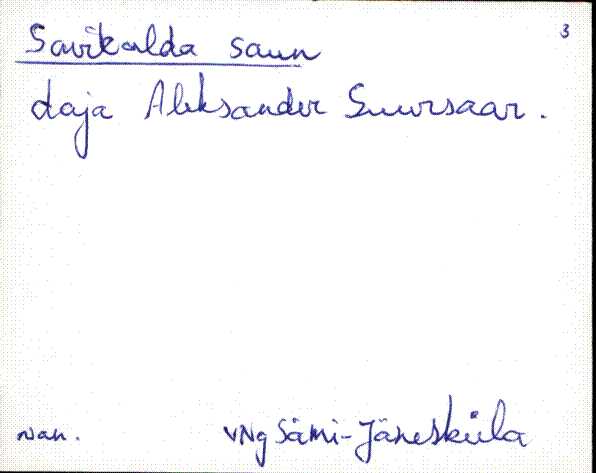 3
Savikalda saun
Looja Aleksander Suursaar.
van. VNg Sämi-Jänesküla